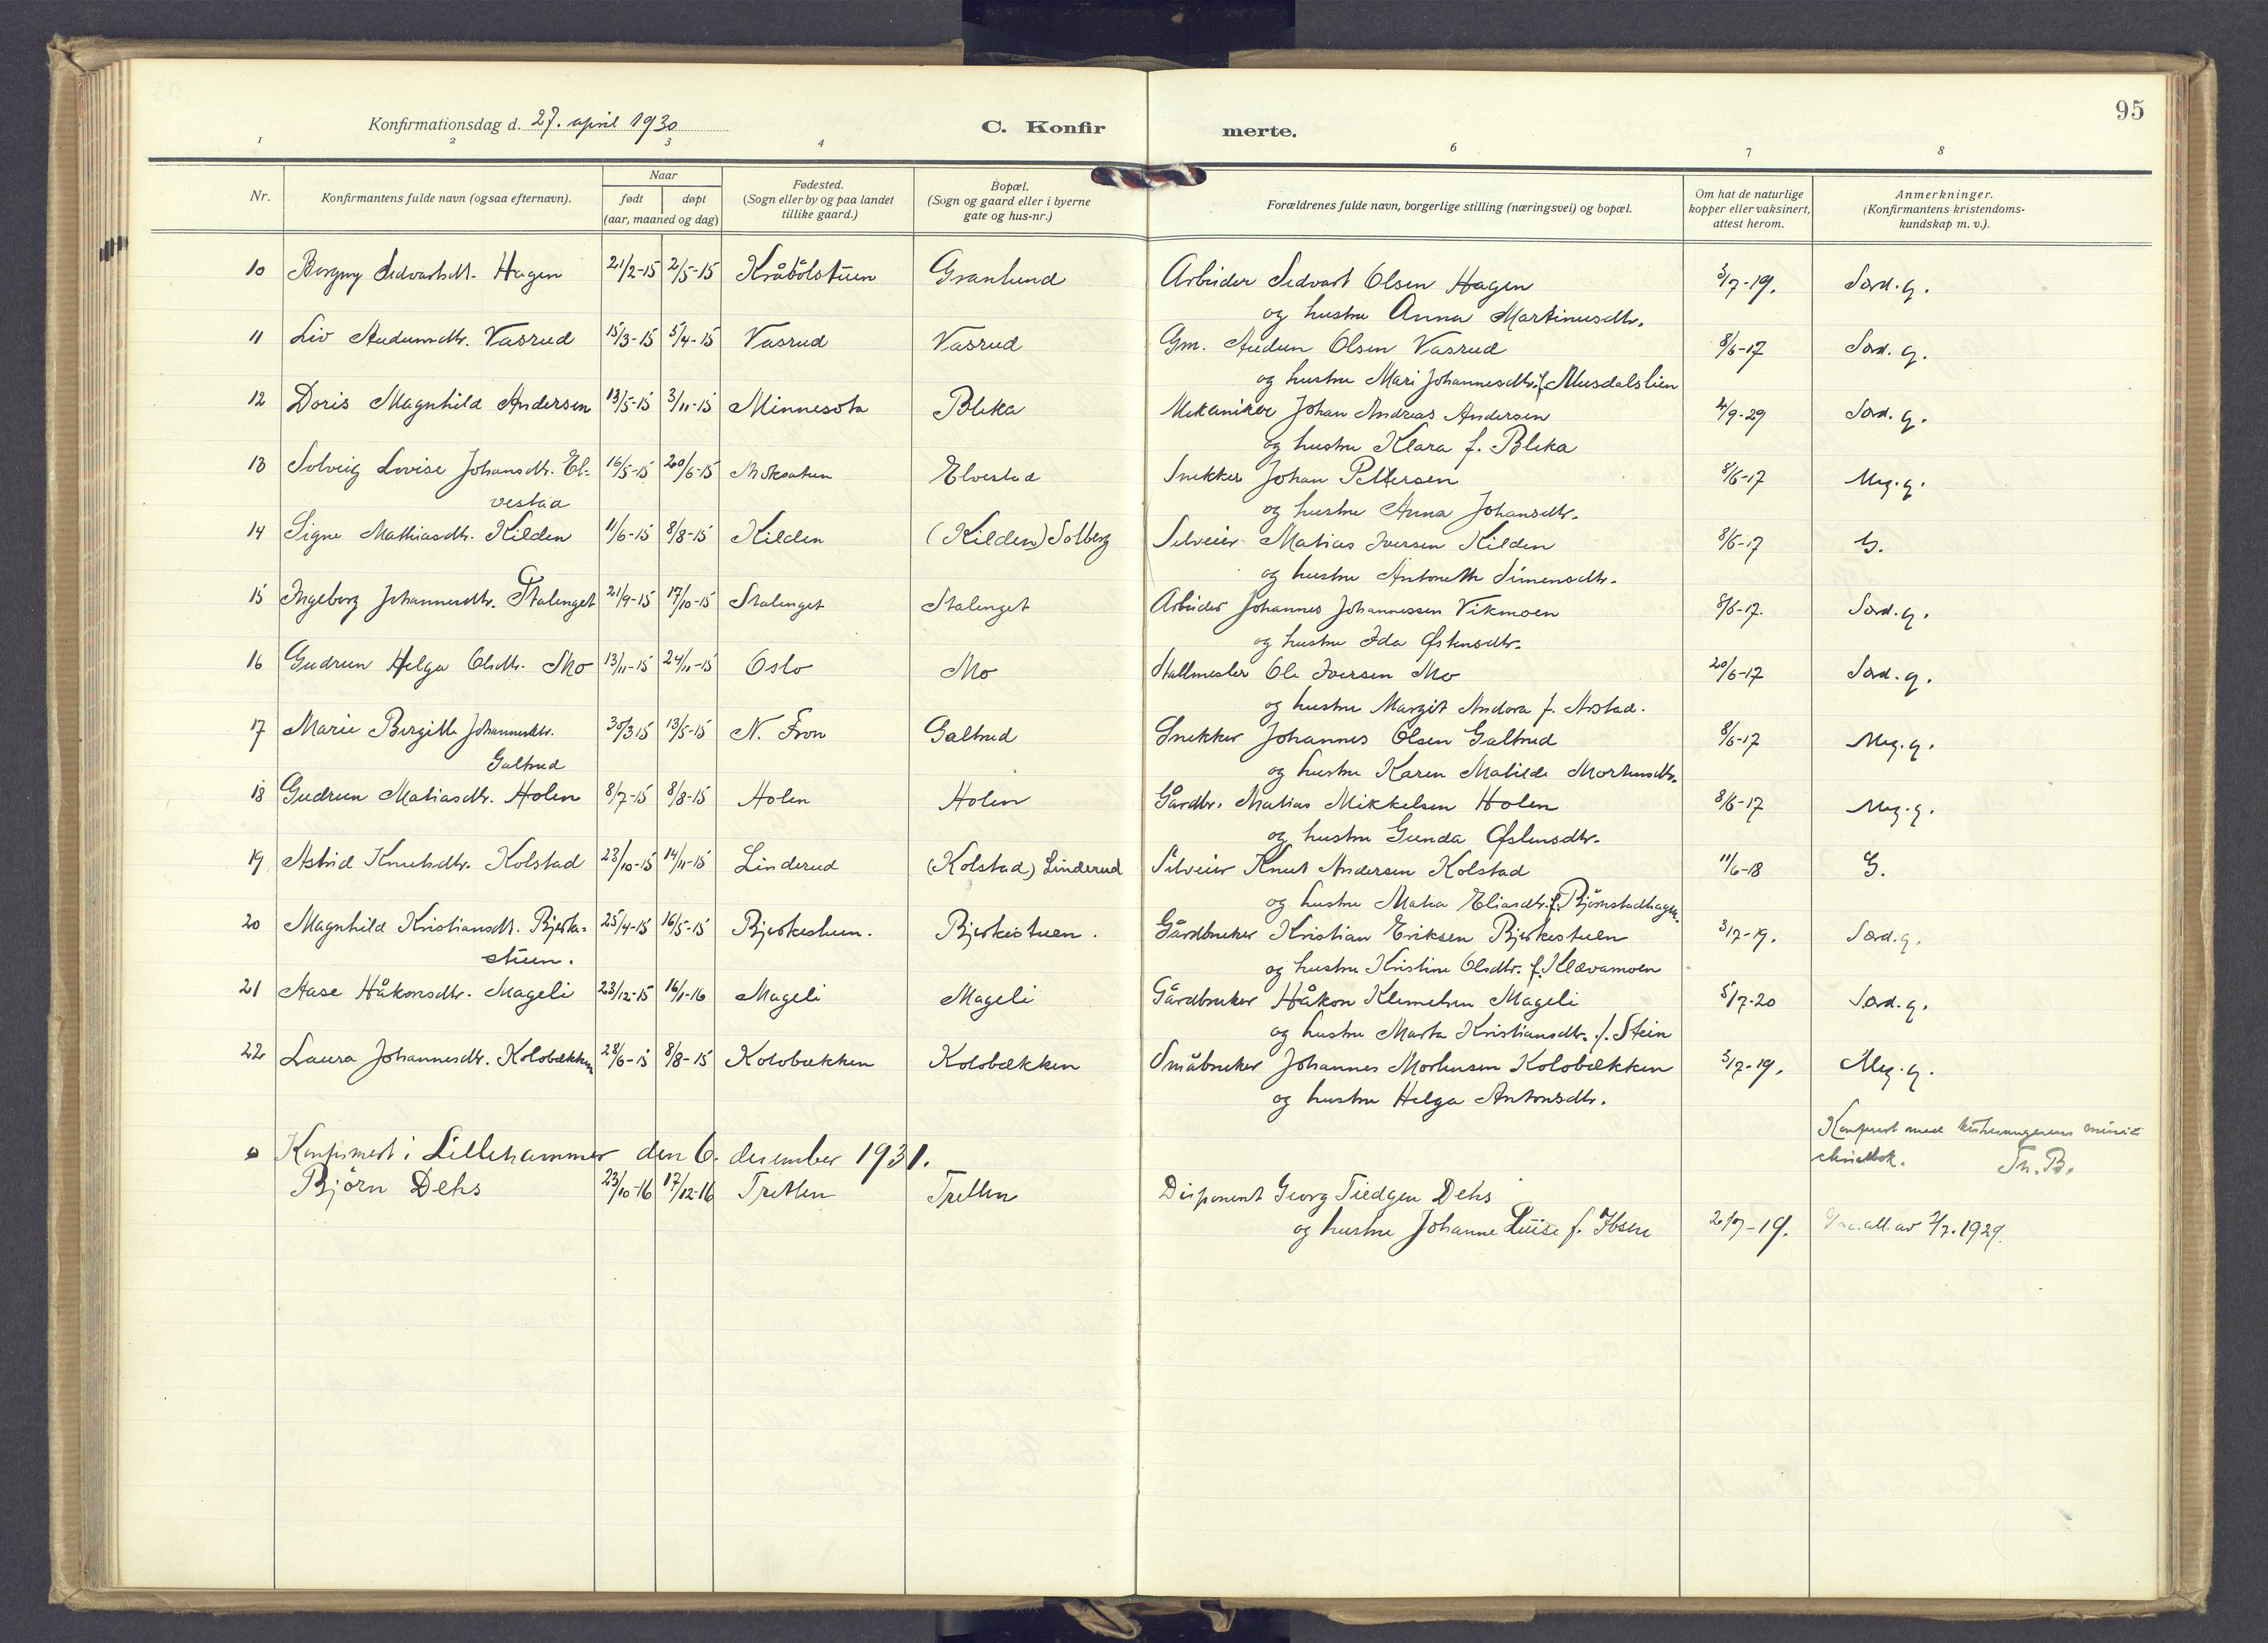 95
Konfirmationsdag d. 27. april 1930 C. Konfirmerte.
1 2 3 4 6 7 8
Nr. Konfirmantens fulde navn (ogsaa efternavn). Naar født døpt (aar, maaned og dag) Fødested. (Sogn eller by og paa landet tillike gaard.) Bopæl. (Sogn og gaard eller i byerne gate og hus-nr.) Forældrenes fulde navn, borgerlige stilling (næringsvei) og bopæl. Om hat de naturlige kopper eller vaksinert, attest herom. Anmerkninger. (Konfirmantens kristendomskundskap m. v.).
10 Borgny Sedvartsdt. Hagen 21/2-15 2/5-15 Kråbölstuen Granlund Arbeider Sedvart Olsen Hagen 3/7-19. Særd. g.
og hustru Anna Martinusdtr.
11 Liv Audunsdtr. Vasrud 15/3-15 5/4-15 Vasrud Vasrud Gm. Audun Olsen Vasrud 8/6-17 Særd. g.
og hustru Mari Johannesdtr. f. Musdalslien
12 Doris Magnhild Andersen 13/5-15 3/11-15 Minnesota Bleka Mekaniker Johan Andreas Andersen 4/9-29 Særd. g.
og hustru Klara f. Bleka
13 Solveig Lovise Johansdtr. El- 16/5-15 20/6-15 Moksatuen Elvestad Snekker Johan Pettersen 8/6-17 Meg. g.
vestad og hustru Anna Johansdtr.
14 Signe Mathiasdtr. Kilden 11/6-15 8/8-15 Kilden (Kilden) Solberg Selveier Matias Iversen Kilden 8/6-17 G.
og hustru Antonette Simensdtr.
15 Ingeborg Johannesdtr. Stalenget 21/9-15 17/10-15 Stalenget Stalenget Arbeider Johannes Johannessen Vikmoen 8/6-17. Særd. g.
og hustru Ida Østensdtr.
16 Gudrun Helga Olsdtr. Mo 13/11-15 24/11-15 Oslo Mo Stallmester Ole Iversen Mo 20/6-17 Særd. g.
og hustru Margit Andora f. Arstad.
17 Marie Bergitte Johannesdtr. 30/3 15 13/5-15 N. Fron Galtrud Snekker Johannes Olsen Galtrud 8/6-17 Meg. g.
Galtrud og hustru Karen Matilde Mortensdtr.
18 Gudrun Matiasdtr. Holen 8/7-15 8/8-15 Holen Holen Gårdbr. Matias Mikkelsen Holen 8/6-17 Meg. g.
og hustru Gunda Østensdtr.
19 Astrid Knutsdtr. Kolstad 23/10-15 14/11-15 Linderud (Kolstad) Linderud Selveier Knut Andersen Kolstad 11/6-18 G.
og hustru Matea Eliasdtr. f. Björnstadhagen
20 Magnhild Kristiansdt. Bjerke- 25/4-15 16/5-15 Bjerkestuen. Bjerkestuen. Gårdbruker Kristian Eriksen Bjerkestuen 3/7-19. Særd. g.
stuen. og hustru Kristine Olsdtr. f. Klævamoen
21 Aase Håkonsdtr. Mageli 23/12-15 16/1-16 Mageli Mageli Gårdbruker Håkon Klemetsen Mageli 5/7-20 Særd. g.
og hustru Marta Kristiansdtr. f. Stein
22 Laura Johannesdtr. Kolobækken 28/6-15 8/8-15 Kolobækken Kolobækken Småbruker Johannes Mortensen Kolobækken 3/7-19. Meg. g.
og hustru Helga Antonsdtr.
Konfirmert i Lillehammer den 6. desember 1931. Konferert med
Th. B.
Björn Dehs 23/10-16 17/12-16 Tretten Tretten Disponent Georg Tiedgen Dehs
og hustru Johanne Luise f. Ibsen 2/7-19. av 2/7.1929.